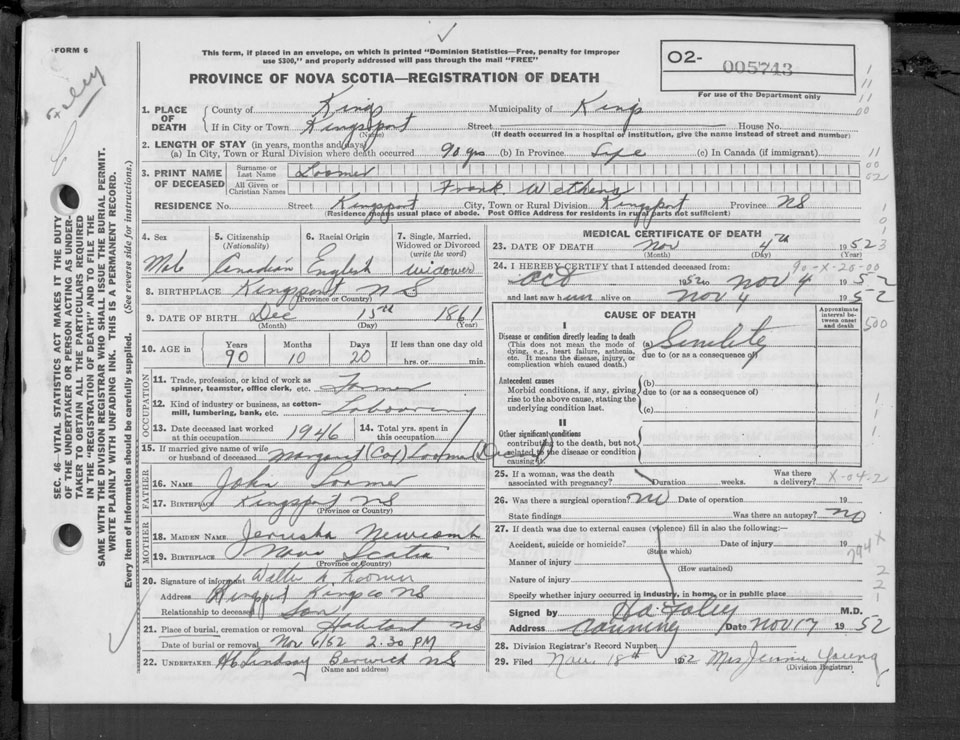 FORM 6
This form, if placed in an envelope, on which is printed "Dominion Statistics—Free, penalty for improper
use $300," and properly addressed will pass through the mail "FREE"
PROVINCE OF NOVA SCOTIA—REGISTRATION OF DEATH
02- 005743
For use of the Department only
Foley
SEC. 46—VITAL STATISTICS ACT MAKES IT THE DUTY
OF THE UNDERTAKER OR PERSON ACTING AS UNDER-
TAKER TO OBTAIN ALL THE PARTICULARS REQUIRED
IN THE "REGISTRATION OF DEATH" AND TO FILE THE
SAME WITH THE DIVISION REGISTRAR WHO SHALL ISSUE THE BURIAL PERMIT.
WRITE PLAINLY WITH UNFADING INK. THIS IS A PERMANENT RECORD.
Every item of information should be carefully supplied. (See reverse side for instructions.)
1. PLACE OF DEATH County of Kings Municipality of Kings
If in City or Town Kingsport Street House No.
(Name) (If death occurred in a hospital or institution, give the name instead of street and number)
2. LENGTH OF STAY (in years, months and days)
(a) In City, Town or Rural Division where death occurred 90 yrs (b) In Province Life (c) In Canada (if immigrant)
3. PRINT NAME OF DECEASED Surname or Last Name Loomer
All Given or Christian Names Frank
RESIDENCE No. Street Kingsport City, Town or Rural Division Kingsport Province NS
(Residence means usual place of abode. Post Office Address for residents in rural parts not sufficient)
4. Sex 5. Citizenship (Nationality) 6. Racial Origin 7. Single, Married, Widowed or Divorced (write the word)
Canadian English widower
8. BIRTHPLACE Kingsport N S
(Province or Country)
9. DATE OF BIRTH Dec 15th 1861
(Month) (Day) (Year)
10. AGE in Years Months Days If less than one day old
90 10 20 hrs. or min.
OCCUPATION
11. Trade, profession, or kind of work as spinner, teamster, office clerk, etc. Farmer
12. Kind of industry or business, as cotton-mill, lumbering, bank, etc. Labouring
13. Date deceased last worked at this occupation 1946 14. Total yrs. spent in this occupation
15. If married give name of wife or husband of deceased Margaret (Cox) Loomer
FATHER
16. NAME John Loomer
17. BIRTHPLACE Kingsport NS
(Province or Country)
MOTHER
18. MAIDEN NAME Jerusha Newcomb
19. BIRTHPLACE Nova Scotia
(Province or Country)
20. Signature of informant Walter A Loomer
Address Kingsport Kings co NS
Relationship to deceased Son
21. Place of burial, cremation or removal Habitant NS
Date of burial or removal Nov 6/52 2.30 PM
22. UNDERTAKER Lindsay Berwick NS
(Name and address)
MEDICAL CERTIFICATE OF DEATH
23. DATE OF DEATH Nov 4th 1952
(Month) (Day) (Year)
90-X-20-00
24. I HEREBY CERTIFY that I attended deceased from:
Oct 1952 to Nov 4 1952
and last saw him alive on Nov 4 1952
CAUSE OF DEATH
Approximate interval between onset and death
I
Disease or condition directly leading to death
(This does not mean the mode of dying, e.g., heart failure, asthenia, etc. It means the disease, injury, or complication which caused death.)
(a) Senility
due to (or as a consequence of)
Antecedent causes
Morbid conditions, if any, giving rise to the above cause, stating the underlying condition last.
(b)
due to (or as a consequence of)
(c)
II
Other significant conditions
contributing to the death, but not related to the disease or condition causing it.
25. If a woman, was the death associated with pregnancy? Duration weeks. Was there a delivery?
X-04-2
26. Was there a surgical operation? No Date of operation 19
State findings Was there an autopsy? no
27. If death was due to external causes (violence) fill in also the following:—
Accident, suicide or homicide? Date of injury 19
(State which)
794 X
Manner of injury
(How sustained)
Nature of injury
Specify whether injury occurred in industry, in home, or in public place
Signed by Foley M.D.
Address Canning Date Nov 17 1952
28. Division Registrar's Record Number
29. Filed Nov. 18th 1952 Mrs Jennie Young
(Division Registrar)